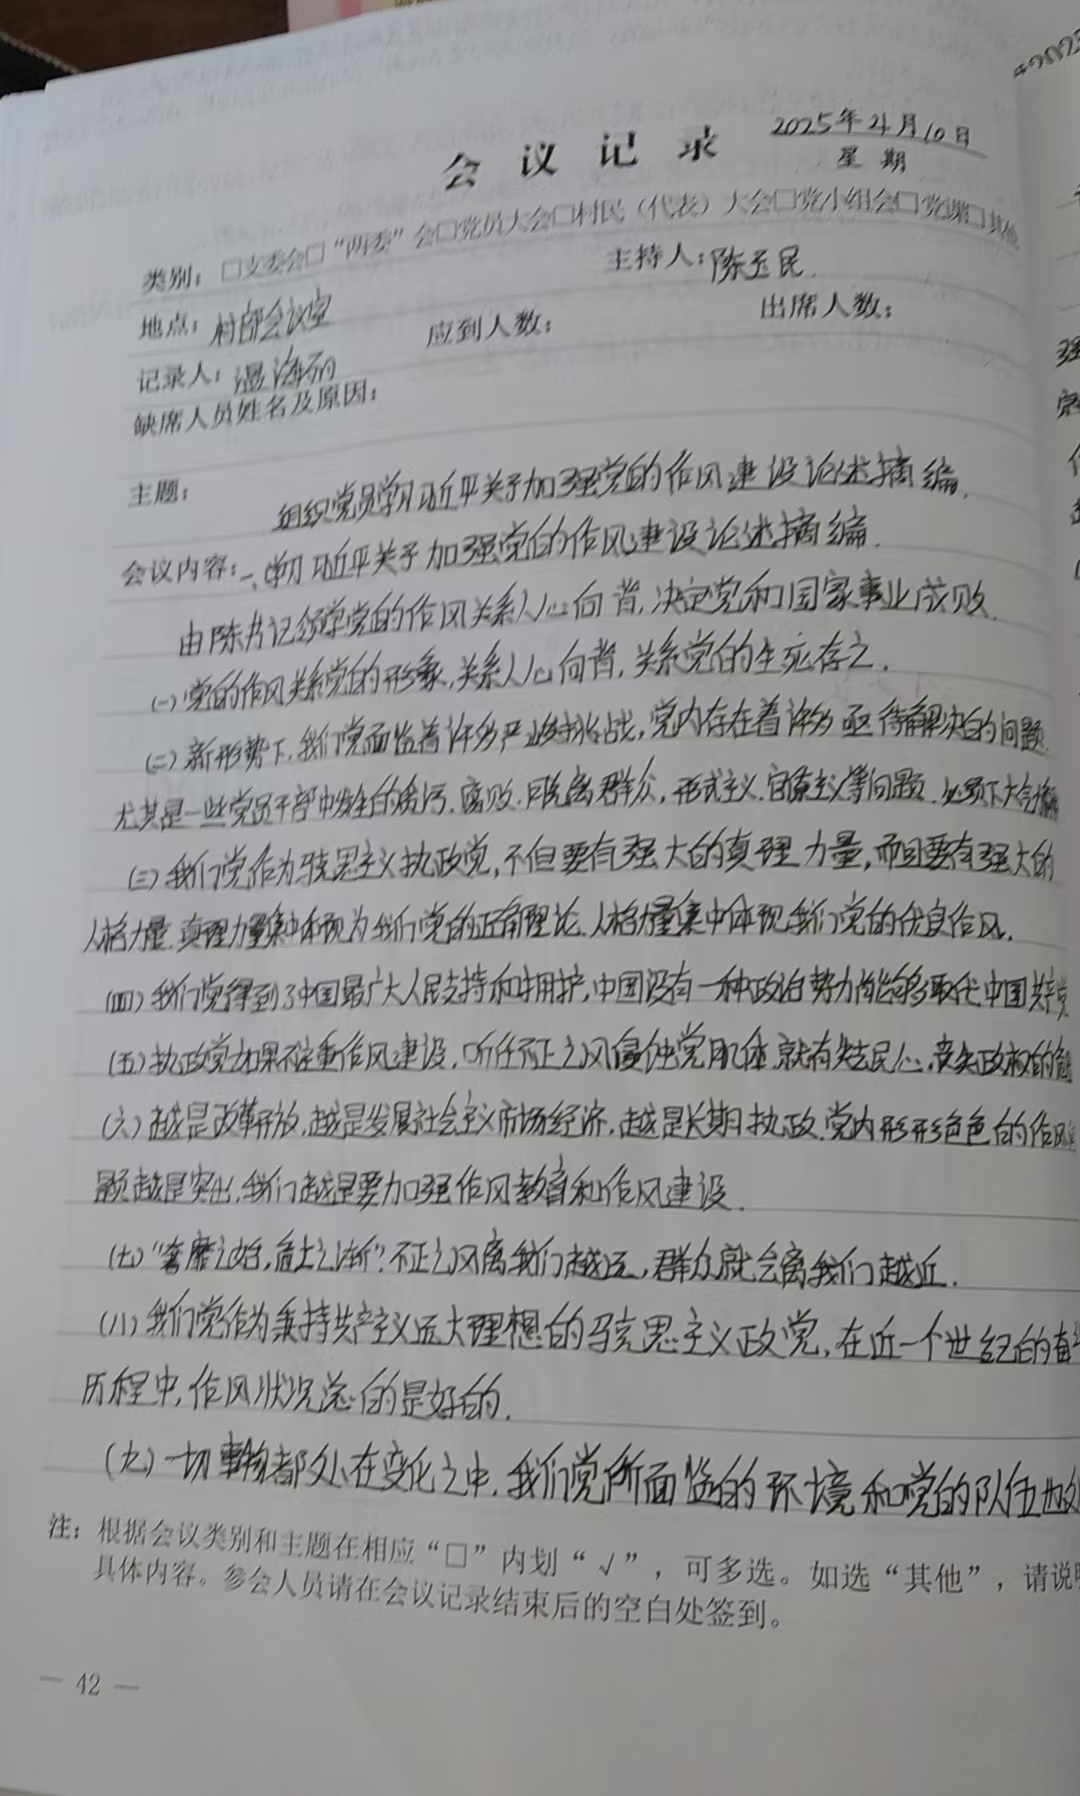 会议记录
2025年4月10日
星期
类别：□支委会□“两委”会□党员大会□村民（代表）大会□党小组会□党课□其他
地点：村部会议室 主持人：陈玉民.
记录人：温海丽 应到人数： 出席人数：
缺席人员姓名及原因：
主题： 组织党员学习习近平关于加强党的作风建设论述摘编.
会议内容：一、学习习近平关于加强党的作风建设论述摘编.
由陈书记领学党的作风关系人心向背，决定党和国家事业成败.
(一)党的作风关系党的形象，关系人心向背，关系党的生死存亡.
(二)新形势下,我们党面临着许多严峻挑战,党内存在着许多亟待解决的问题.
尤其是一些党员干部中发生的贪污.腐败.脱离群众,形式主义.官僚主义等问题.必须下大气力
(三)我们党作为马克思主义执政党,不但要有强大的真理力量,而且要有强大的
人格力量.真理力量集中体现为我们党的正确理论.人格力量集中体现我们党的优良作风.
(四)我们党得到了中国最广大人民支持和拥护,中国没有一种政治势力能够取代中国共产党
(五)执政党如果不注重作风建设,听任不正之风侵蚀党肌体.就有失去民心.丧失政权的危
(六)越是改革开放,越是发展社会主义市场经济,越是长期执政.党内形形色色的作风问
题越是突出,我们越是要加强作风教育和作风建设.
(七)“奢靡之始,危亡之渐”.不正之风离我们越远,群众就会离我们越近.
(八)我们党作为秉持共产主义远大理想的马克思主义政党,在近一个世纪的奋斗
历程中,作风状况总的是好的.
(九)一切事物都处在变化之中,我们党所面临的环境和党的队伍也处
注：根据会议类别和主题在相应“□”内划“√”，可多选。如选“其他”，请说明
具体内容。参会人员请在会议记录结束后的空白处签到。
— 42 —